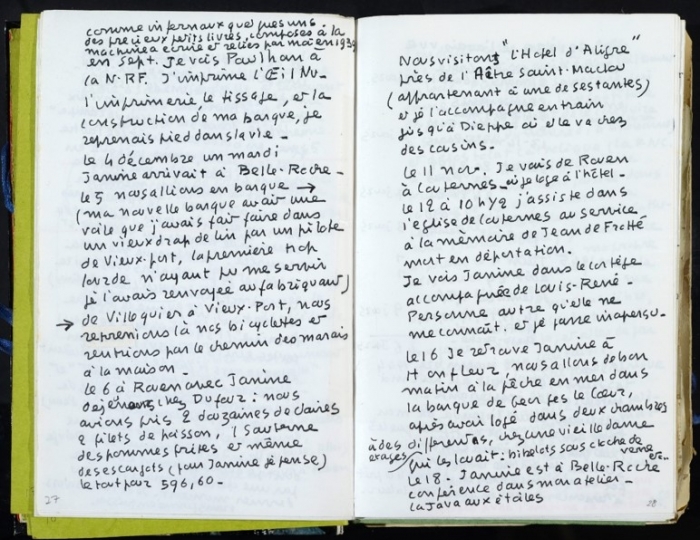 comme infernaux quelques uns
des precieux petits livres, composés à la
machine à écrire et reliés par moi en 1939
en sept. Je vais Paulhan à
la N.R.F. J'imprime l'Œil Nu.
l'imprimerie le tissage, et la
construction de ma barque, je
reprenais pied dans la vie -
le 4 décembre un mardi
Janine arrivait à Belle-Roche -
le 5 nous allions en barque →
(ma nouvelle barque avait une
voile que j'avais fait faire dans
un vieux drap de lin par un pilote
de Vieux-port, la première trop
lourde n'ayant pu me servir
je l'avais renvoyée au fabriquant)
→ de Villequier à Vieux-Port, nous
reprenions là nos bicyclettes et
rentrions par le chemin des marais
à la maison -
le 6 à Rouen avec Janine
Déjeuner chez Dufour : nous
avions pris 2 douzaines de claires
2 filets de poisson, 1 Sauterne
des pommes frites et même
des escargots (pour Janine je pense)
le tout pour 596,60 -
27
Nous visitons "l'Hotel d'Aligre"
près de l'Aître Saint-Maclou
(appartenant à une de ses tantes)
et je l'accompagne en train
jusqu'à Dieppe où elle va chez
des cousins.
le 11 nov. Je vais de Rouen
à Couternes où je loge à l'hôtel -
le 12 à 10 h ½ j'assiste dans
l'eglise de Couternes au service
à la mémoire de Jean de Frotté
mort en déportation.
Je vois Janine dans le cortège
accompagnée de Louis-René -
Personne autre qu'elle ne
me connaît. et je passe inaperçu.
le 16 Je retrouve Janine à
Honfleur, nous allons de bon
matin à la pêche en mer dans
la barque de Georges le Cœur,
après avoir logé dans deux chambres
à des étages différents, chez une vieille dame
qui les louait : bibelots sous cloche de verre etc..
le 18. Janine est à Belle-Roche
conférence dans mon atelier -
la Java aux étoiles
28